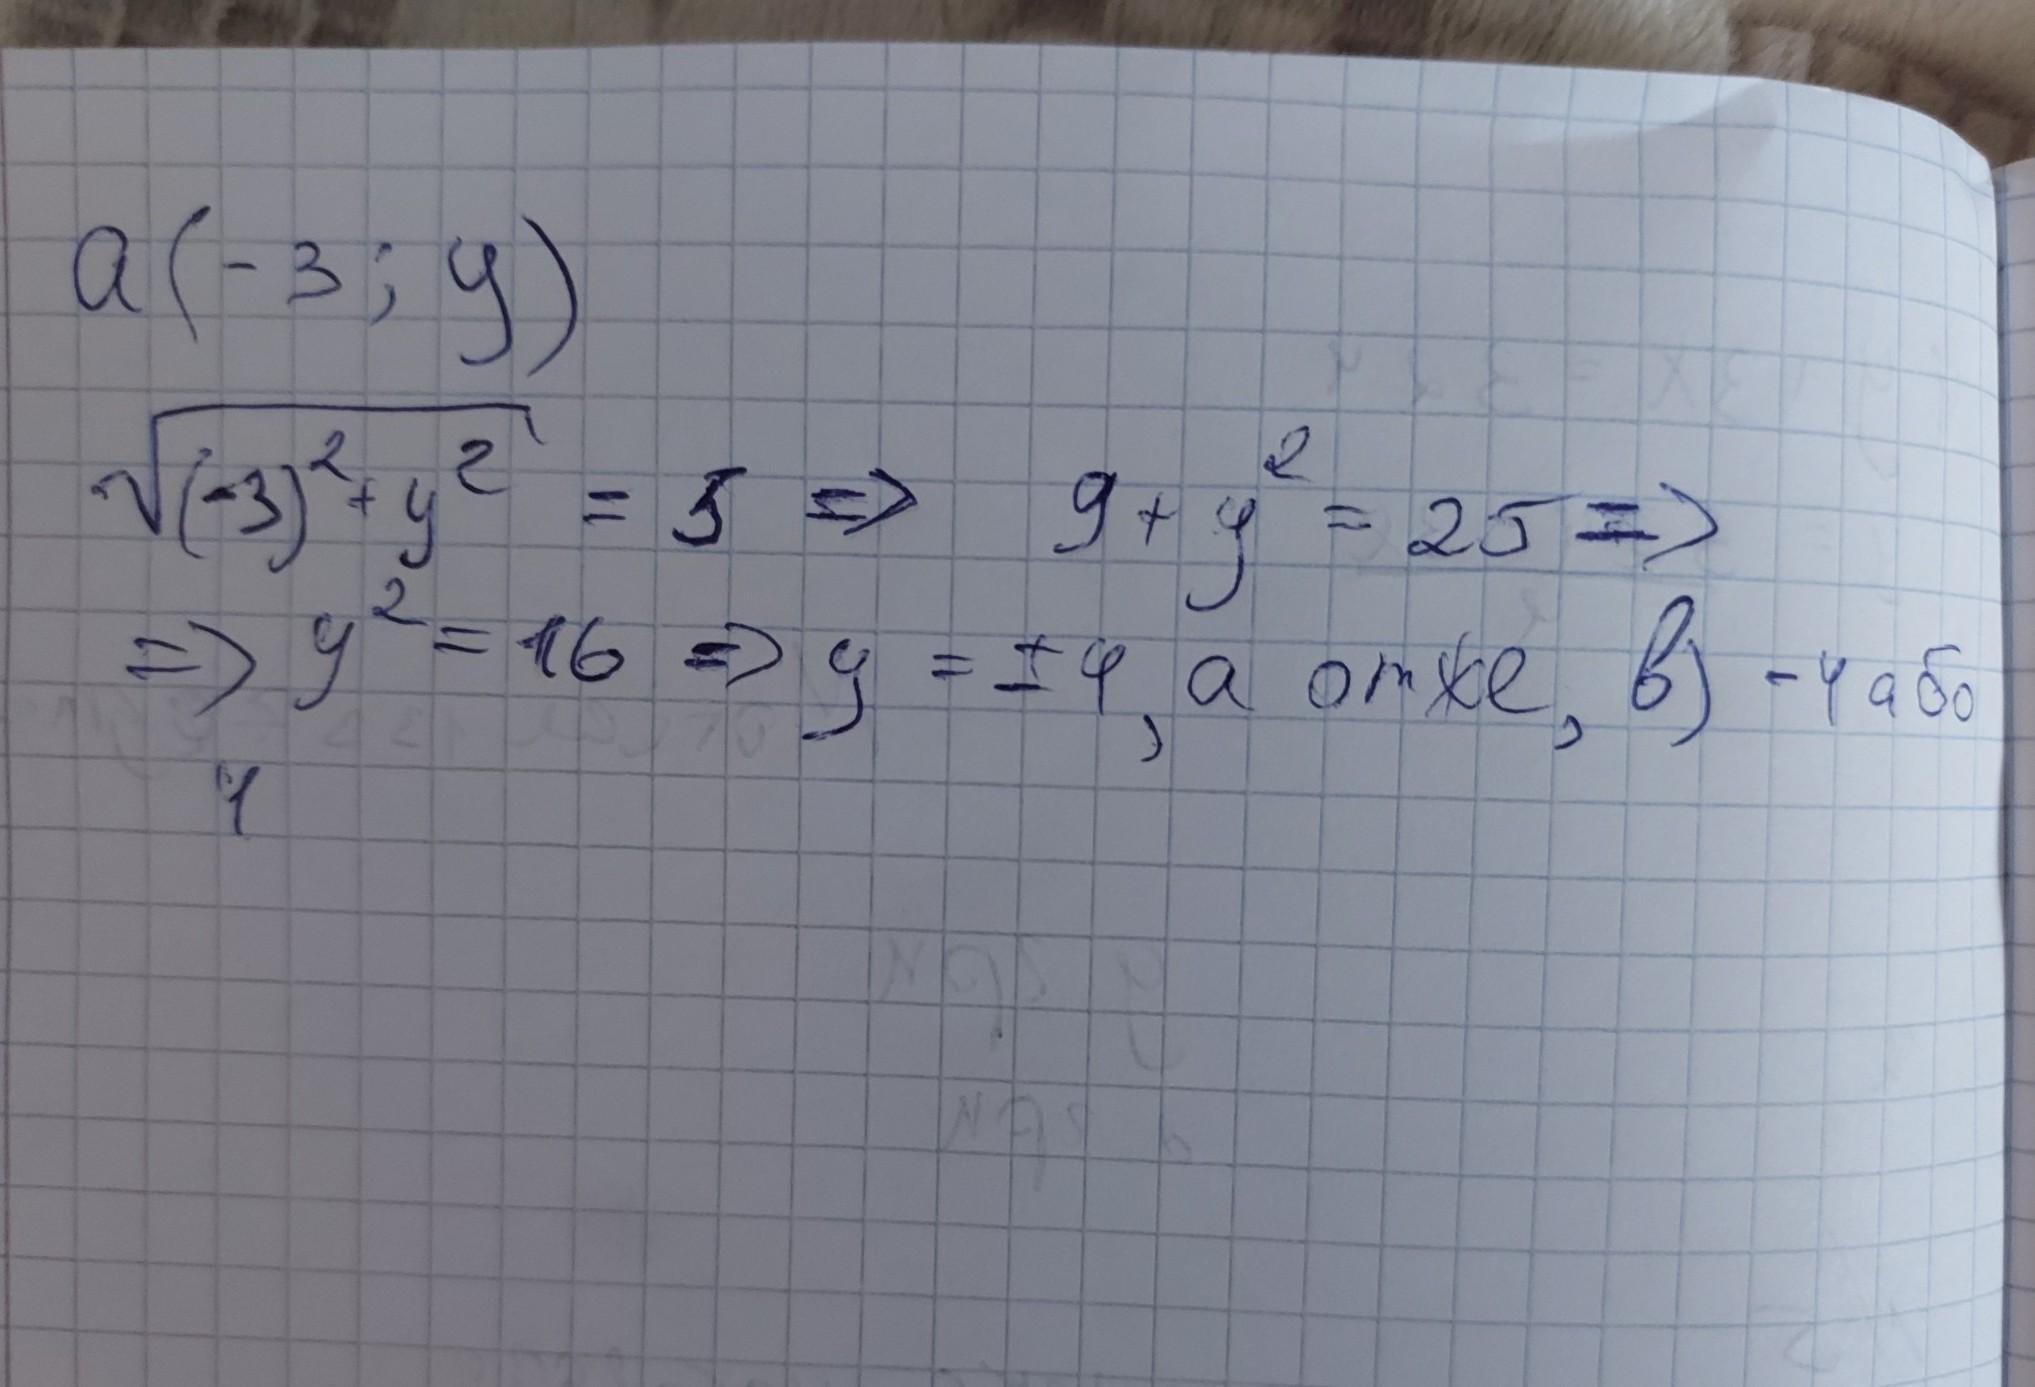 a(-3; y)
√(-3)²+y² = 5 => 9+y² = 25 =>
=> y² = 16 => y = ±4, а отже, в) -4 або
4